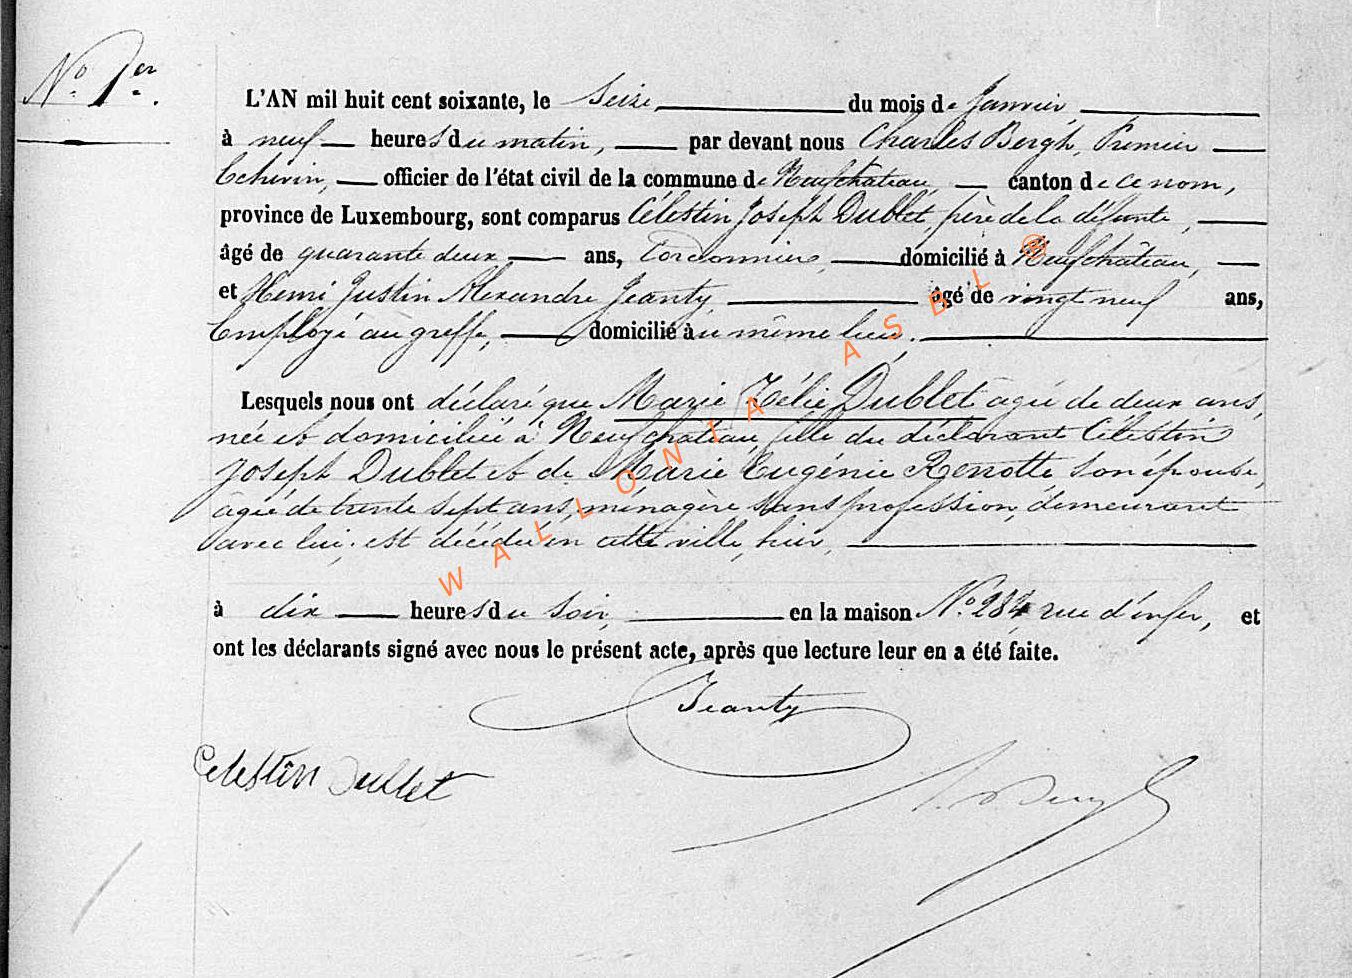 N° 1er.
L'AN mil huit cent soixante, le Seize du mois de Janvier,
à neuf heures du matin, par devant nous Charles Bergh, Premier
Echevin, officier de l'état civil de la commune de Neufchateau, canton de ce nom,
province de Luxembourg, sont comparus Célestin Joseph Dublet, père de la défunte,
âgé de quarante deux ans, Cordonnier, domicilié à Neufchâteau,
et Henri Justin Alexandre Jeanty âgé de vingt neuf ans,
Employé au greffe, domicilié au même lieu.
Lesquels nous ont déclaré que Marie Zélie Dublet agée de deux ans,
née et domiciliée à Neufchateau, fille du déclarant Célestin
Joseph Dublet et de Marie Eugénie Renotte son épouse,
agée de trente sept ans, ménagère sans profession, demeurant
avec lui, est décédée en cette ville, hier,
à dix heures du soir, en la maison N° 284 rue d'enfer, et
ont les déclarants signé avec nous le présent acte, après que lecture leur en a été faite.
Jeanty
Celestin Dublet
Bergh
WALLONIA ASBL ®